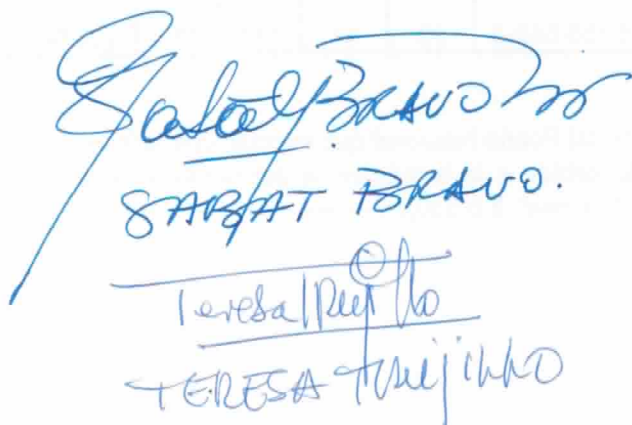 BRAVO
SABAT BRAVO.
Teresa Trujillo
TERESA TRUJILLO